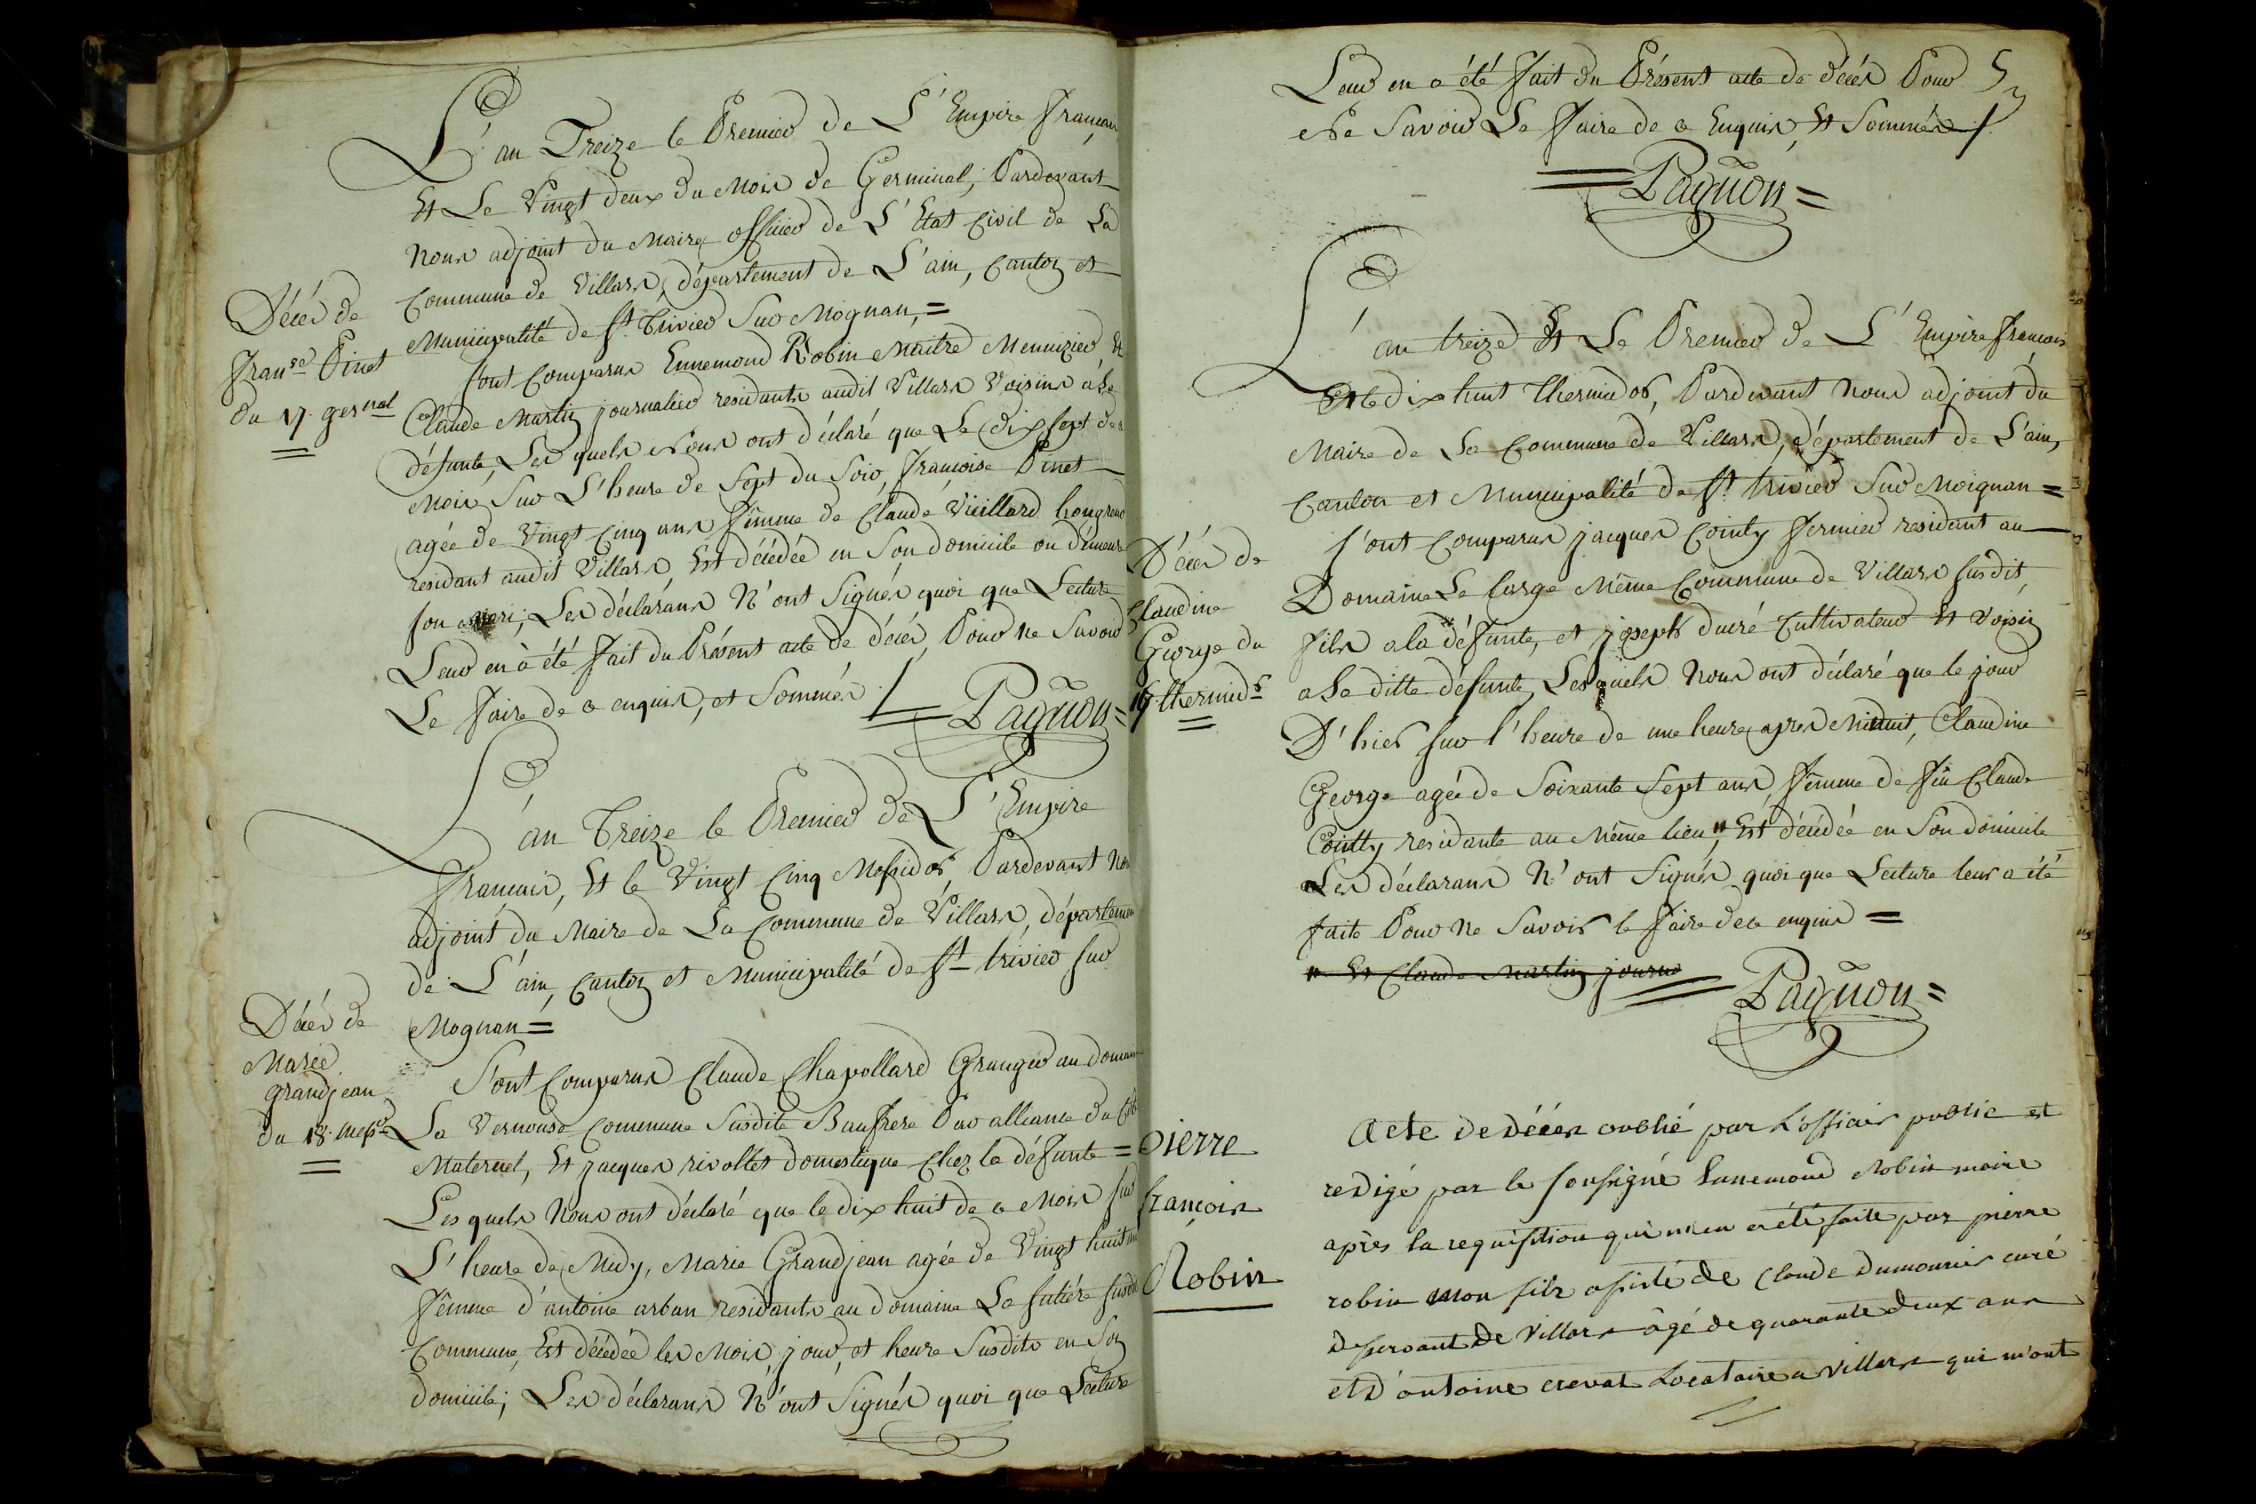 L'an Treize le Premier de L'Empire français
Et Le Vingt deux du Mois de Germinal, Pardevant
Nous adjoint du Maire officier de L'Etat Civil de La
Commune de Villars, département de L'ain, Canton et
Municipalité de St. Trivier Sur Mognan, =
Décès de
franse Pinet
du 17. gernal
Sont Comparus Ennemond Robin Maitre Menuizier, Et
Claude Martin journalier residants audit Villars Voisins à la
défunte, Les quels Nous ont déclaré que Le dix sept du
Mois Sur L'heure de Sept du Soir, françoise Pinet
agée de Vingt Cinq ans femme de Claude Vieillard hongreur
residant audit Villars Est décédée en Son domicile ou demeure
son mari; Les déclarans N'ont Signés quoi que Lecture
Leur en à été fait du Présent acte de décès, Pour ne Savoir
Le faire de ce enquis, et Sommés
Pagnon =
L'an Treize le Premier de L'Empire
français, Et le Vingt Cinq Messidor Pardevant Nous
adjoint du Maire de La Commune de Villars, département
de L'ain, Canton et Municipalité de St trivier Sur
Mognan =
Décès de
Marie
grandjean
du 18. messor
Sont Comparus Claude Chapollard Granger au domaine
La Vernouse Commune Susdite Baufrere Par alliance du Coté
Maternel, Et jacques rivollet domestique Chez la défunte =
Les quels Nous ont déclaré que le dix huit de ce Mois Sur
L'heure de Midy, Marie Grandjean agée de Vingt huit ans
femme d'antoine arban residante au domaine La futière susdite
Commune, Est décédée les Mois, jour, et heure Susdits en Son
domicile; Les déclarans N'ont Signés quoi que Lecture
Leur en a été fait du Présent acte de décès Pour
Ne Savoir Le faire de ce Enquis, Et Sommés
5
Pagnon =
L'an treize Et Le Premier de L'Empire françois
Et le dix huit thermidor, Pardevant Nous adjoint du
Maire de La Commune de Villars, département de L'ain,
Canton et Municipalité de St. trivier Sur Moignan =
Décès de
Claudine
George du
17. thermidr
Sont Comparus jacques Cointy fermier residant au
Domaine Le large Même Commune de Villars susdit,
fils a la défunte, et joseph ducré Cultivateur Et Voisin
a La ditte défunte, Lesquels Nous ont déclaré que le jour
D'hier sur l'heure de une heure apres Minuit, Claudine
George agée de Soixante Sept ans, femme de feu Claude
Cointy residante au Même lieu, Est décédée en Son domicile
Les déclarans N'ont Signés quoi que Lecture leur a été
faite Pour Ne Savoir le faire de ce enquis =
Et Claude Martin journ
Pagnon =
pierre
françois
Robin
Acte de Décés oublié par L'officier public et
redigé par le soussigné Ennemond Robin maire
après la requisition qui m'en a été faite par pierre
robin mon fils assisté de Claude Dumonier curé
Desservant de Villars âgé de quarante deux ans
et d'antoine crevat Locataire a villars qui m'ont